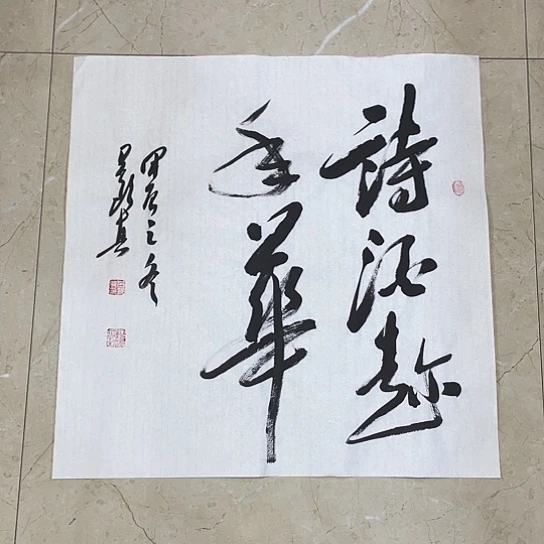 詩酒趁
年華
甲辰之冬